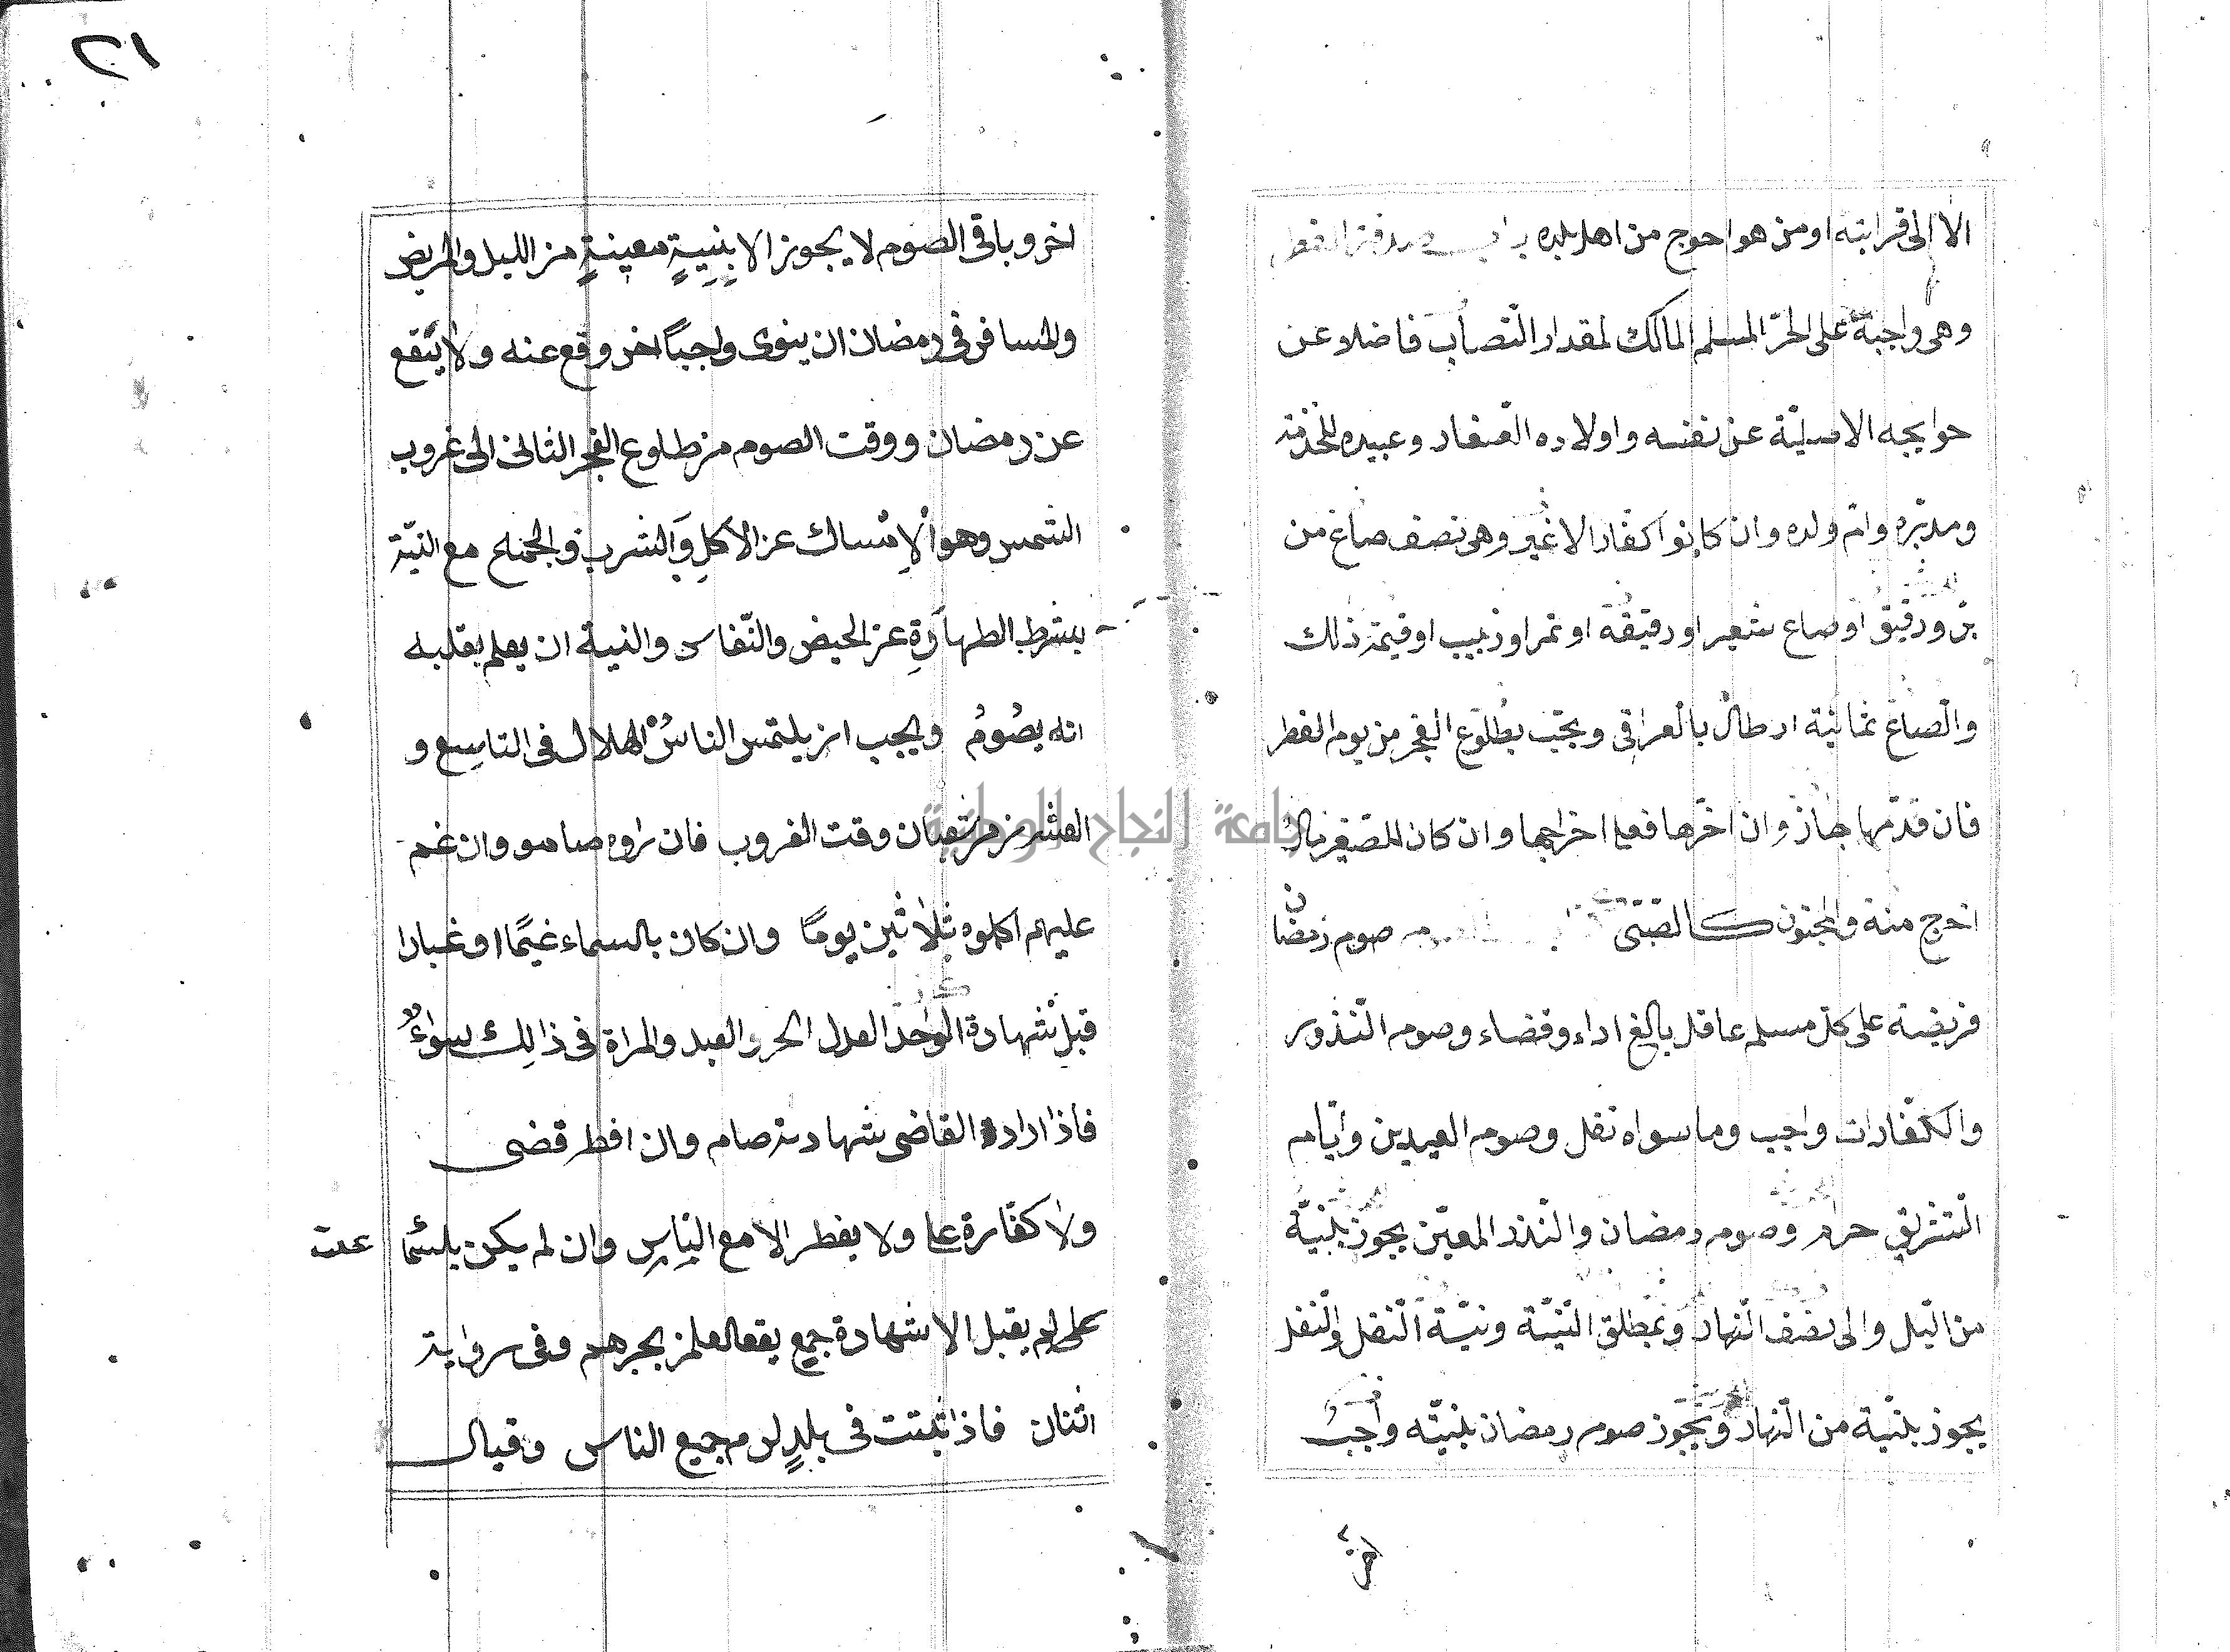 الا الى قرابته او من هو احوج من اهل بلده باب صدقة الفطر
وهى واجبة على الحرّ المسلم المالك لمقدار النّصاب فاضلا عن
حوايجه الاصليّة عن نفسه واولاده الصّغار وعبيده للخدمة
ومدبّره وامّ ولده وان كانوا كفّارا لا غير وهى نصف صاع من
برّ ودقيق او صاع شعير او دقيقه او تمر او زبيب او قيمة ذلك
والصّاع ثمانية ارطال بالعراقى ويجب بطلوع الفجر من يوم الفطر
فان قدّمها جاز وان اخّرها فعليه اخراجها وان كان للصّغير مال
اخرج منه والمجنون كالصّبىّ صوم رمضان
فريضة على كلّ مسلم عاقل بالغ اداء وقضاء وصوم النّذور
والكفّارات واجب وما سواه نفل وصوم العيدين وايّام
التّشريق حرام وصوم رمضان والنّذر المعيّن يجوز بنيّة
من اليّل والى نصف النّهار وبمطلق النّيّة ونيّة النّفل والنّفل
يجوز بنيّة من النّهار ويجوز صوم رمضان بنيّة واجب
اخر
٢١
اخر وباقى الصوم لا يجوز الا بِنِيةٍ معينةٍ من الليل والمريض
والمسافر فى رمضان ان ينوى واجباً اخر وقع عنه ولا يقع
عن رمضان ووقت الصوم من طلوع الفجر الثانى الى غروب
الشمس وهو الإمساك عن الأكلِ والشرب والجماع مع النيّة
بشرط الطهارةِ عن الحيض والنّفاس والنية ان يعلم بقلبه
انه يصُومُ ويجب ان يلتمس الناسُ الهلال فى التاسِع و
العشرين من شعبان وقت الغروب فان راوه صامو وان غم
عليهم اكملوه ثلاثين يومًا وان كان بالسماء غيمًا او غبارا
قبل شهادة الواحد العدل الحر والعبد والمراة فى ذالِك سواءٌ
فاذا راد القاضى شهادته صام وان افطر قضى
ولا كفّارة عليه ولا يفطر الا مع الناسِ وان لم يكن بالسّماء علت
لم يقبل الا شهادة جمع يقع العلم بخبرهم وفى رواية
اثنان فاذا ثبتت فى بلدٍ لزم جميع الناس وقيال
جامعة النجاح الوطنية